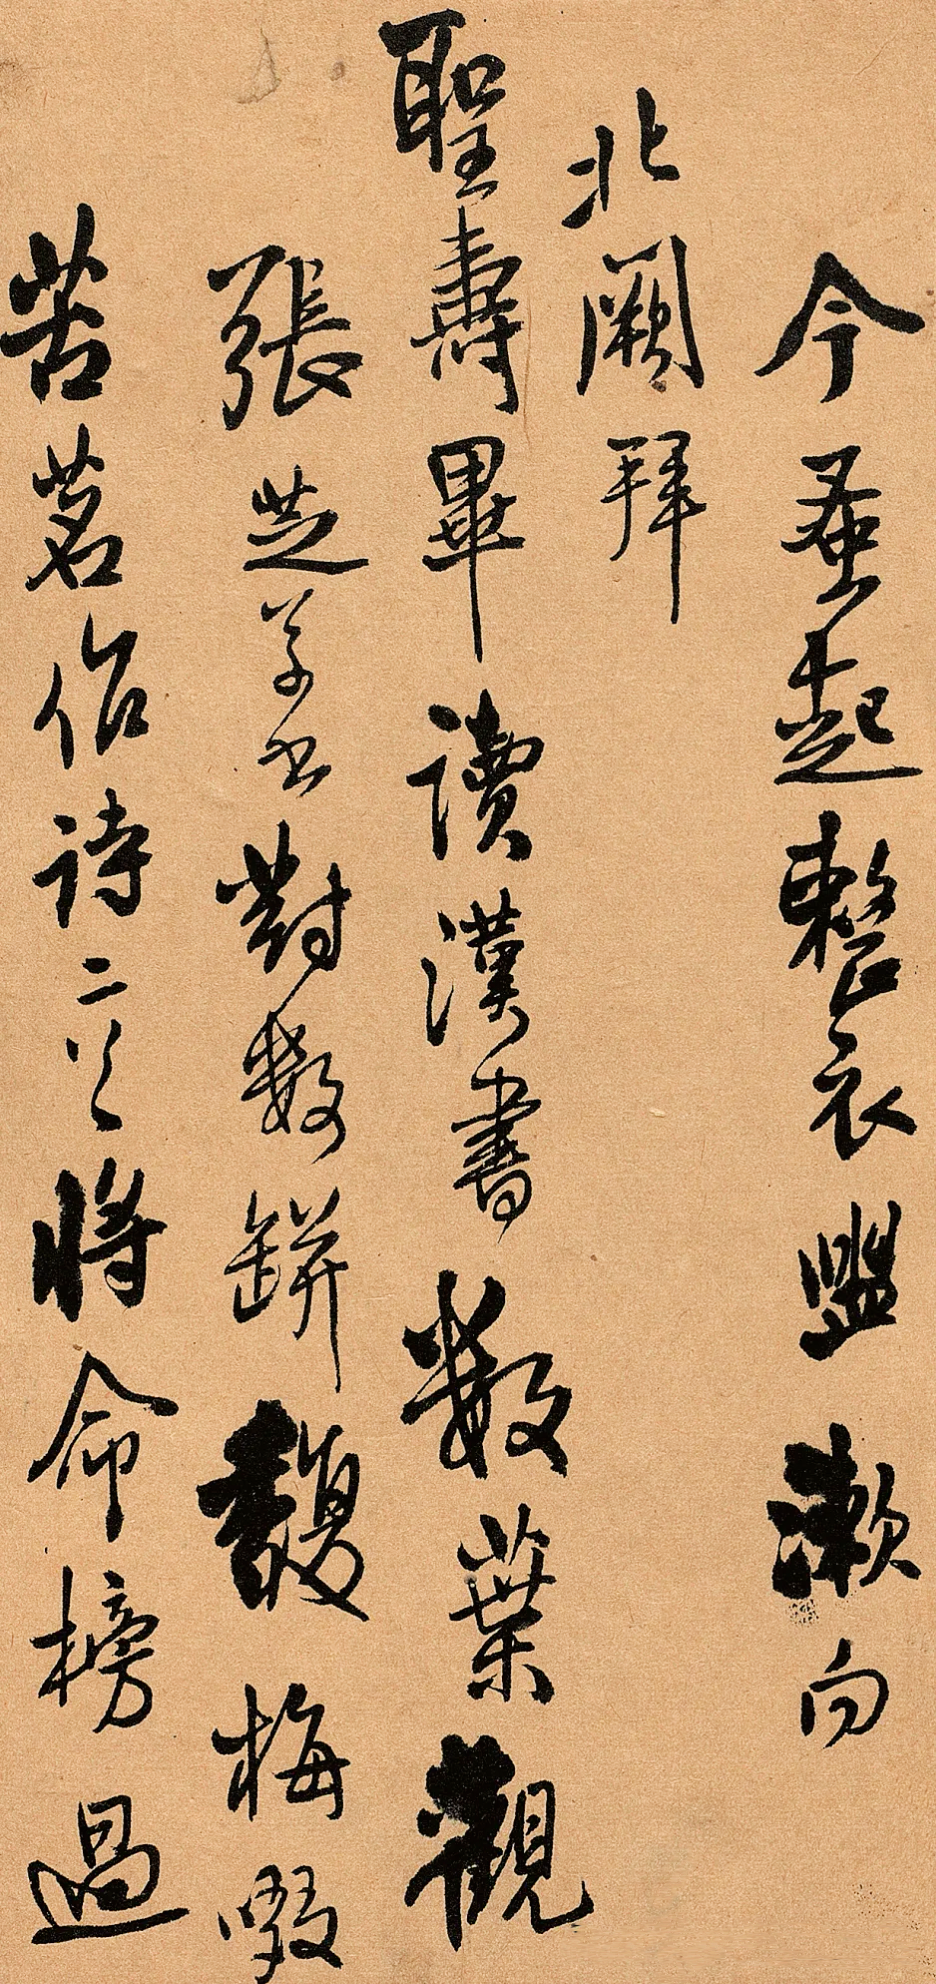 今蚤起整衣盥漱向
北闕拜
聖壽畢讀漢書數葉觀
張芝草書對數缾馥梅啜
苦茗作詩二首將命榜過